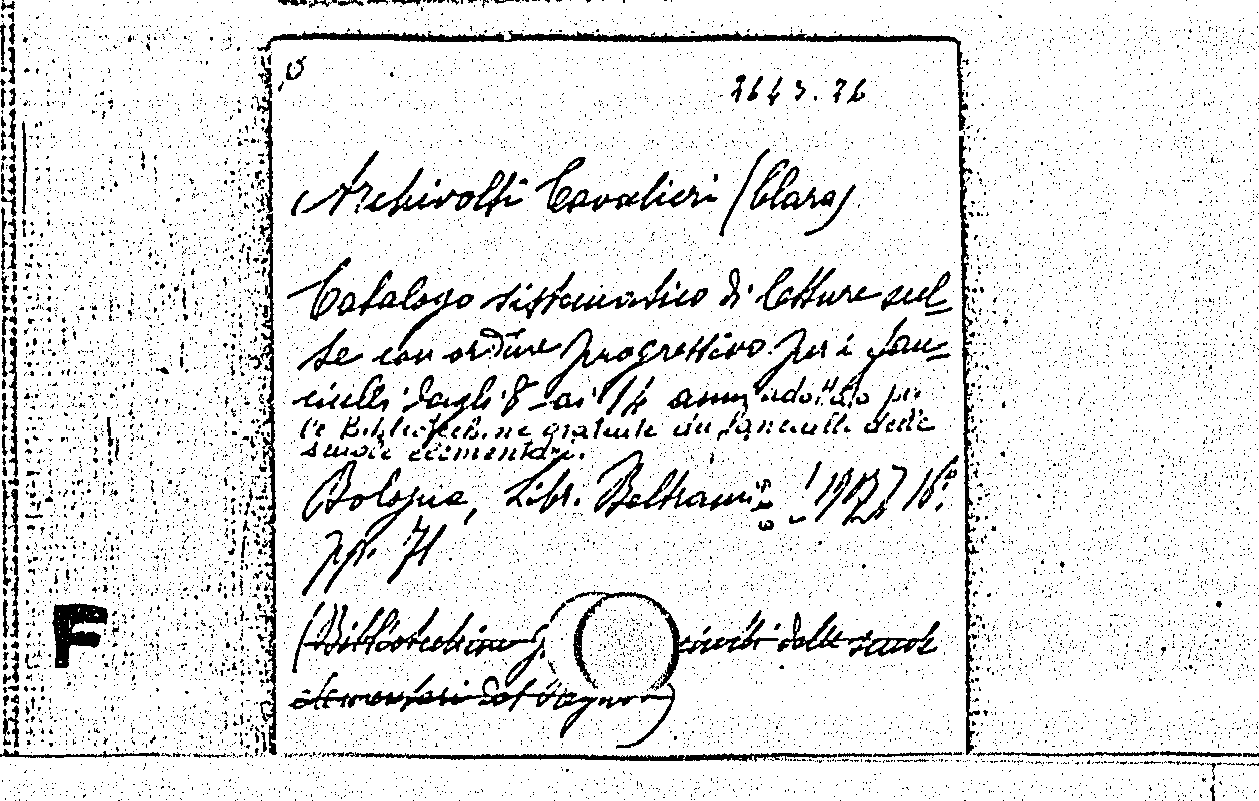 2643.26
Archivolti Cavalieri (Clara)
Catalogo sistematico di letture scel-
te con ordine progressivo per i fan-
ciulli dagli 8 ai 14 anni adottato per
le Bibliotechine gratuite dei fanciulli delle
scuole elementari.
Bologna, Libr. Beltrami, 1907, 16°
pp. 71
(Bibliotechine ciulli delle scuole
F
elementari del Regno)